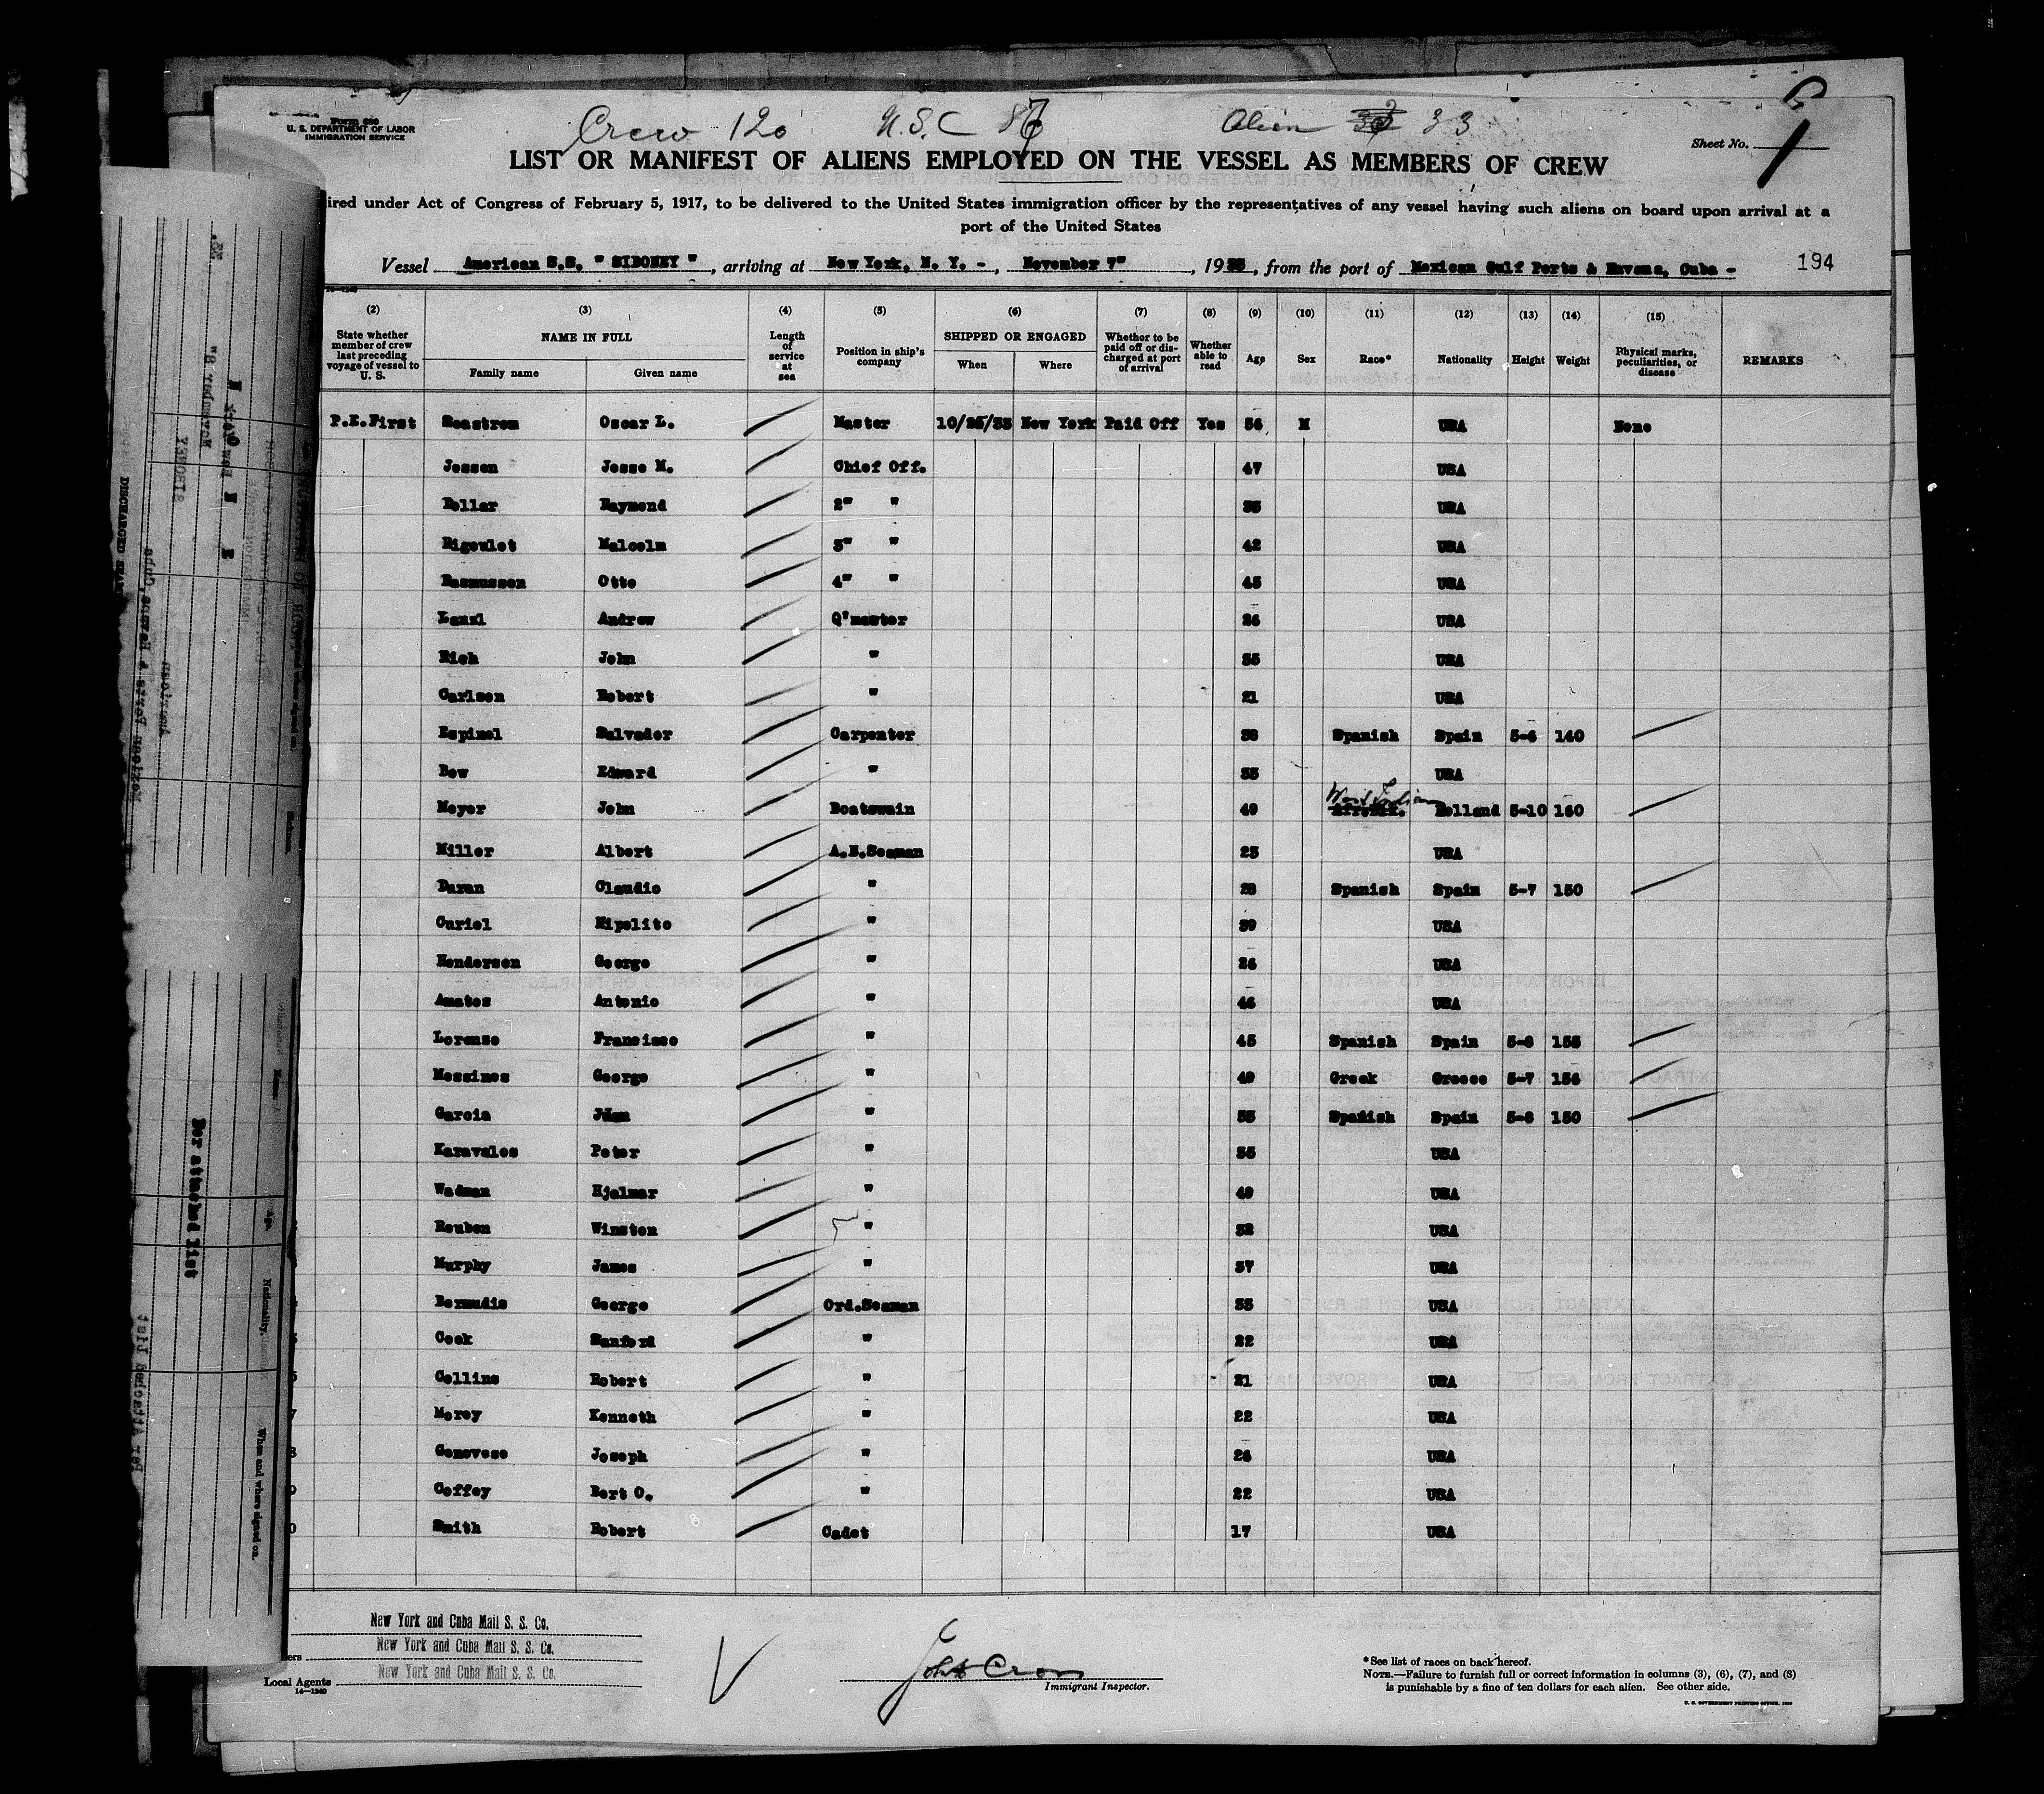 Form 680
U. S. DEPARTMENT OF LABOR
IMMIGRATION SERVICE
Crew 120 U.S.C 87 Alien 33
Sheet No. 1
LIST OR MANIFEST OF ALIENS EMPLOYED ON THE VESSEL AS MEMBERS OF CREW
ired under Act of Congress of February 5, 1917, to be delivered to the United States immigration officer by the representatives of any vessel having such aliens on board upon arrival at a
port of the United States
Vessel American S.S. " SIBONEY ", arriving at New York, N. Y. -, November 7", 1933, from the port of Mexican Gulf Ports & Havana, Cuba - 194
(2) (3) (4) (5) (6) (7) (8) (9) (10) (11) (12) (13) (14) (15)
State whether member of crew last preceding voyage of vessel to U. S. NAME IN FULL Family name Given name Length of service at sea Position in ship's company SHIPPED OR ENGAGED When Where Whether to be paid off or discharged at port of arrival Whether able to read Age Sex Race* Nationality Height Weight Physical marks, peculiarities, or disease REMARKS
P.E.First Seastrom Oscar L. Master 10/25/33 New York Paid Off Yes 56 M USA None
Jessen Jesse M. Chief Off. 47 USA
Pollar Raymond 2" " 35 USA
Rigoulot Malcolm 3" " 42 USA
Rasmussen Otto 4" " 45 USA
Lanzl Andrew Q'master 26 USA
Rich John " 35 USA
Carlson Robert " 21 USA
Espinol Salvador Carpenter 38 Spanish Spain 5-6 140
Bow Edward " 35 USA
Meyer John Boatswain 49 West Indian Holland 5-10 160
Miller Albert A.B.Seaman 23 USA
Duran Claudio " 28 Spanish Spain 5-7 150
Curiel Hipolito " 39 USA
Henderson George " 26 USA
Amatos Antonio " 46 USA
Lorenzo Francisco " 45 Spanish Spain 5-8 155
Messines George " 49 Greek Greece 5-7 156
Garcia Juan " 35 Spanish Spain 5-8 150
Karavalos Peter " 35 USA
Wadman Hjalmar " 49 USA
Reuben Winston " 32 USA
Murphy James " 37 USA
Bermudis George Ord.Seaman 33 USA
Cook Sanford " 22 USA
Collins Robert " 21 USA
Morey Kenneth " 22 USA
Genovese Joseph " 26 USA
Coffey Bert O. " 22 USA
Smith Robert Cadet 17 USA
New York and Cuba Mail S. S. Co.
New York and Cuba Mail S. S. Co.
ers
New York and Cuba Mail S. S. Co.
Local Agents
14—1240
John Cron
Immigrant Inspector.
*See list of races on back hereof.
NOTE.—Failure to furnish full or correct information in columns (3), (6), (7), and (8)
is punishable by a fine of ten dollars for each alien. See other side.
U. S. GOVERNMENT PRINTING OFFICE
Per attached list
DISCHARGED SEAMEN